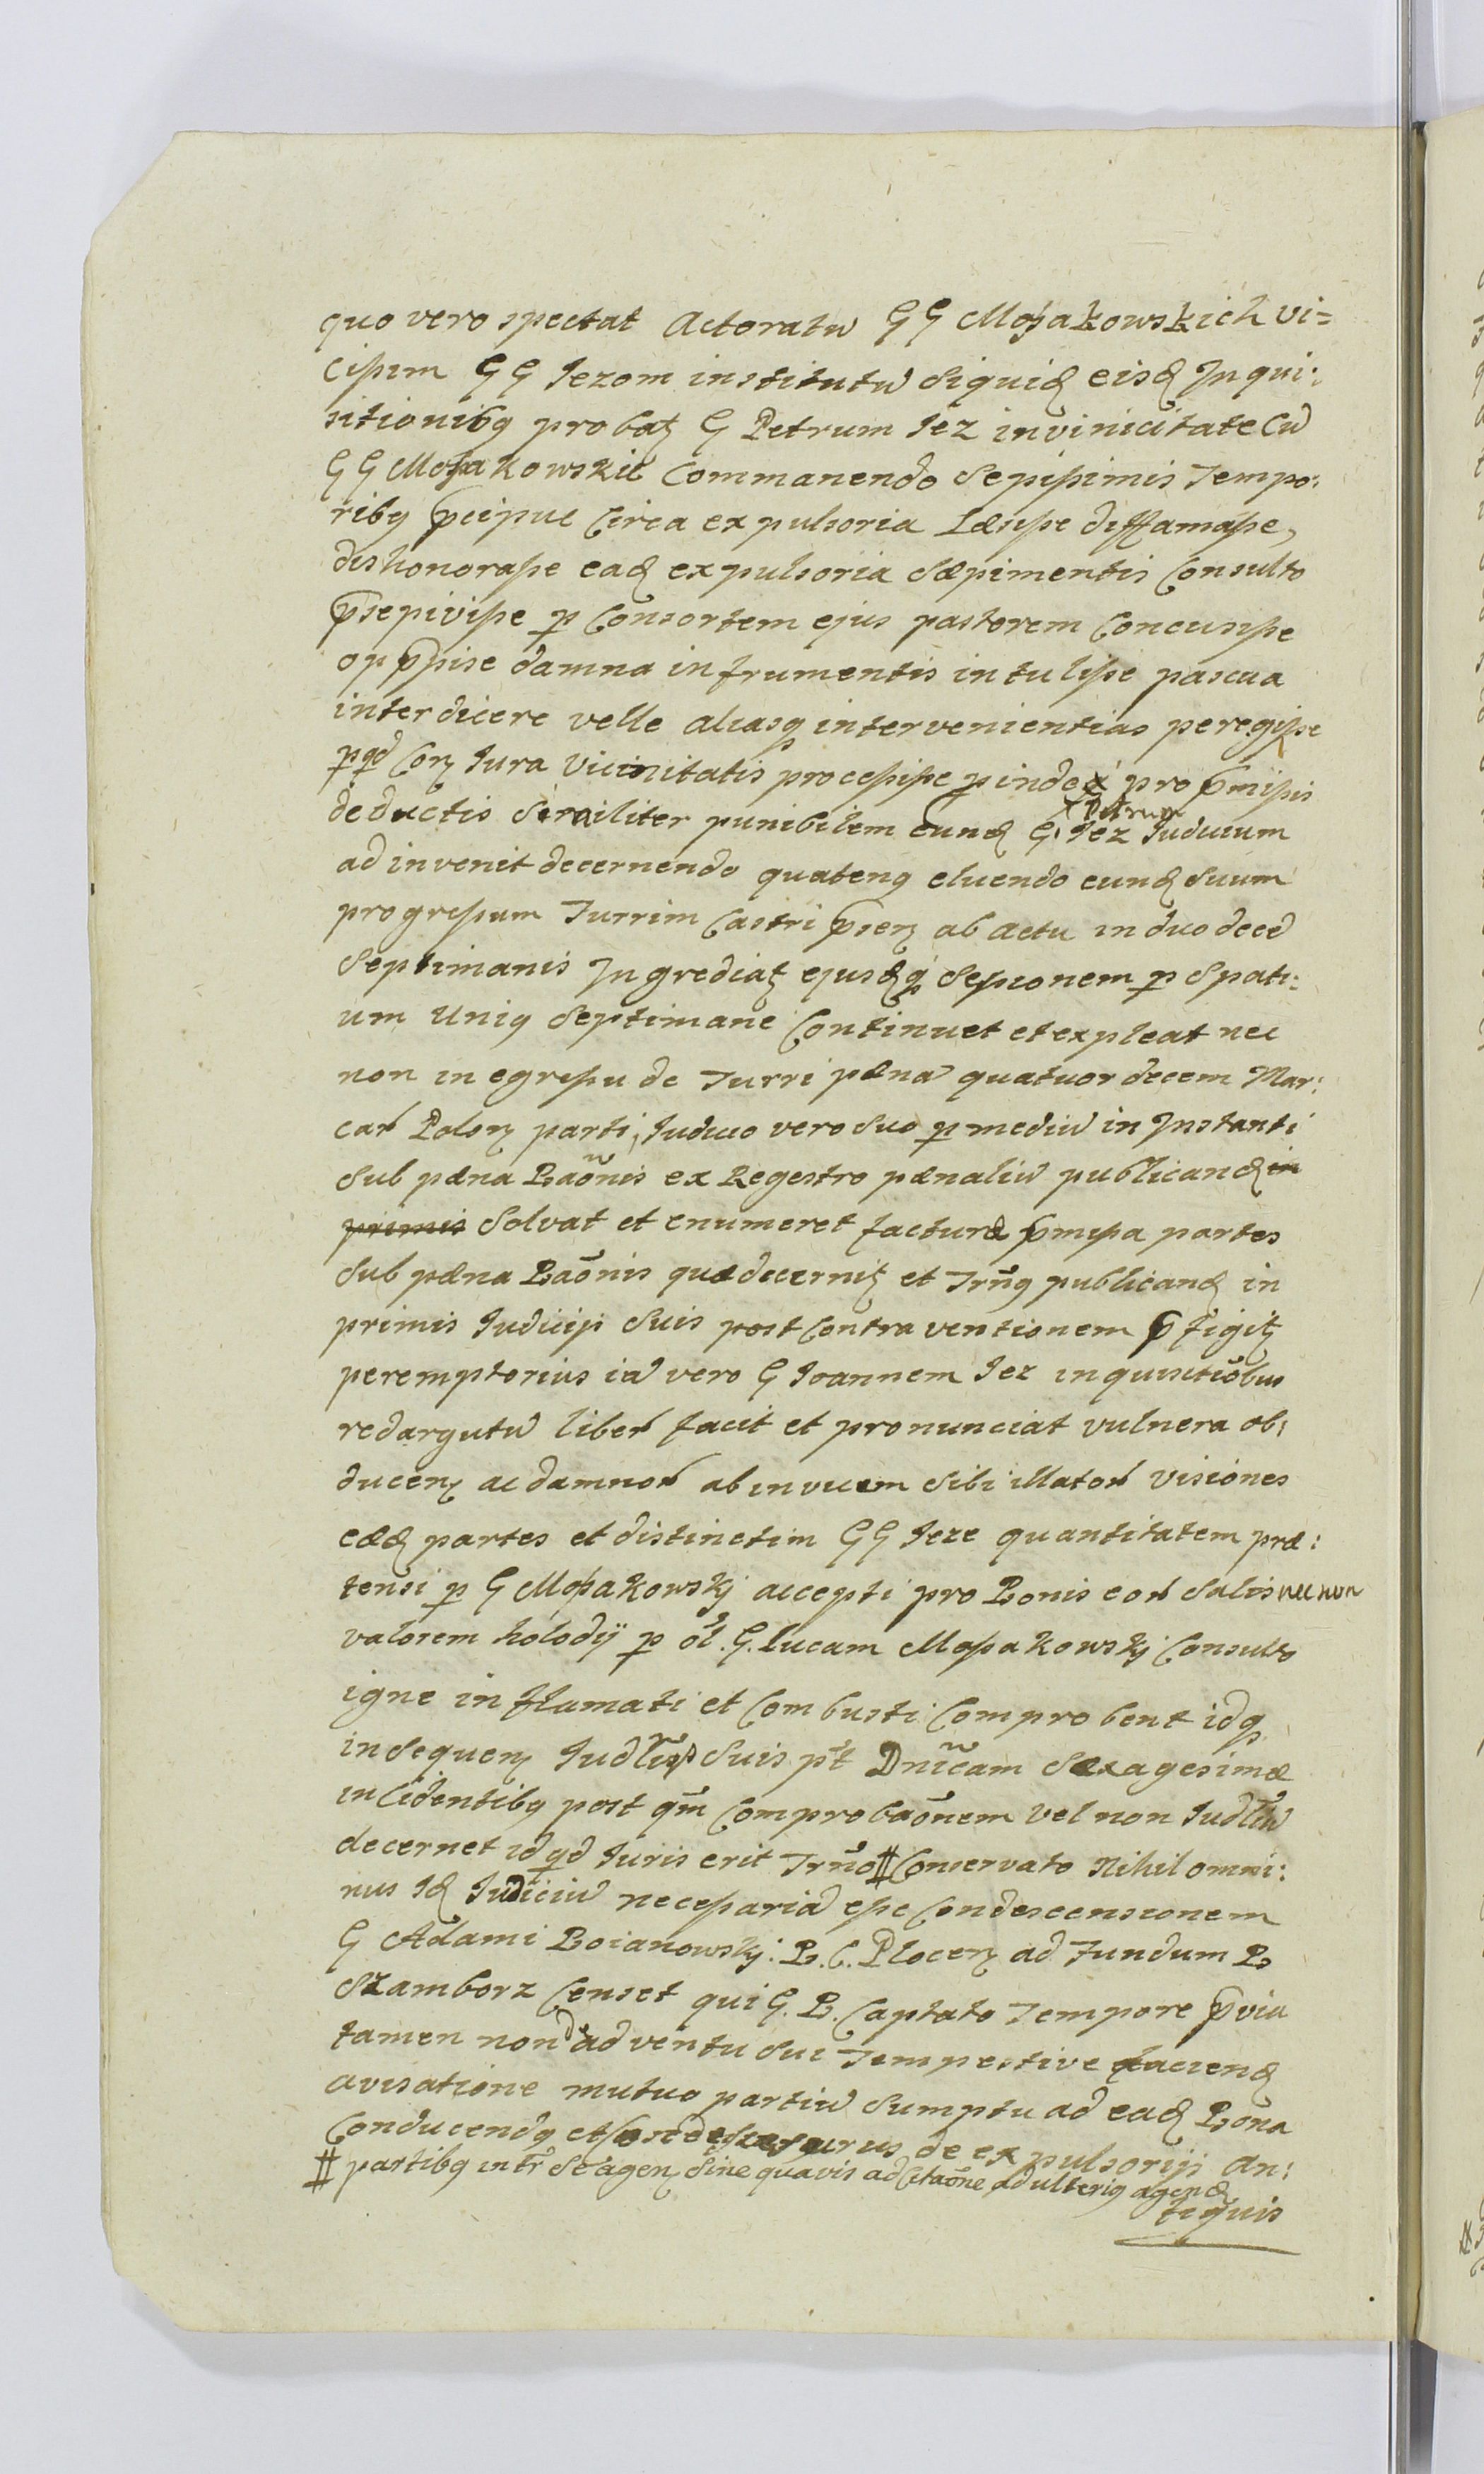 quo vero spectat Actoratũ GG Mossakowskich vi=
cissim GG Jezom institutũ siquiđ eisđ Inqui:
sitionibꝯ probatʒ G Petrum Jez in vinicitate Cũ
GG Mossakowskie Commanendo sepissimis Tempo:
ribꝯ p̃cipue Circa expulsoria Læsisse diffamasse,
dishonorasse eađ expulsoria sæpimentis Consulto
p̃sepivisse ꝑ Consortem ejus pastorem Concusisse
opp̃pise damna in frumentis intulisse pascua
interdicere velle aliasꝗ intervenientias peregisse
ꝑqđ Conʒ Jura Vicinitatis processisse ꝑinde pro p̃missis
deductis similiter punibilem eunđ G. Petrum Jez Judicium
ad invenit decernendo quatenꝯ eluendo eunđ suum
progressum Turrim Castri p̃senʒ ab actu in duodecẽ
Septimanis Ingrediatʒ ejusđꝗ sessionem ꝑ spati:
um Uniꝯ Septimane Continuet et expleat nec
non in egressu de Turri pæna quatuordecem Mar:
carꝝ Polonʒ parti, Judicio vero suo ꝑ mediũ in Instanti
sub pæna Bãonis ex Regestro pænaliũ publicanđ in
primis solvat et enumeret facturæ p̃missa partes
sub pæna Bãonis quæ decernitʒ et Trm̃ꝯ publicanđ in
primis Judicijs suis post Contraventionem p̃figitʒ
peremptorius iã vero G Joannem Jez inquisitiõbus
redargutũ liberꝝ facit et pronunciat vulnera ob:
ducenʒ ac damnorꝝ ab invicem sibi illatorꝝ visiones
eæđ partes et distinctim GG Jeze quantitatem præ:
tensi ꝑ G Mossakowskj accepti pro Bonis eorꝝ salis nec non
valorem holodij ꝑ õl. G. Lucam Mossakowskj Consulto
igne inflamati et Combusti Comprobent idꝗ
in sequenʒ Judicijs suis p̃t Dnĩcam sexagesimæ
incidentibꝯ post qm̃ Comprobãonem vel non Judĩciũ
decernet id qđ Juris erit Trm̃o # Conservato Nihilomni:
nus Iđ Judiciũ necessariã esse Condescensionem
G Adami Boianowskj. B. C. Plocenʒ ad Fundum B
Szamborz Censet qui G. B. Captato Tempore p̃via
tamen non de adventu sui Tempestive facienđ
avisatione mutuo partiũ sumptu ad eađ Bona
Conducendꝯ et Condescensurus de expulsorijs an:
# partibꝯ intr̃ se agenʒ sine quavis adcitãone ad ulteriꝯ agenđ
tiquis